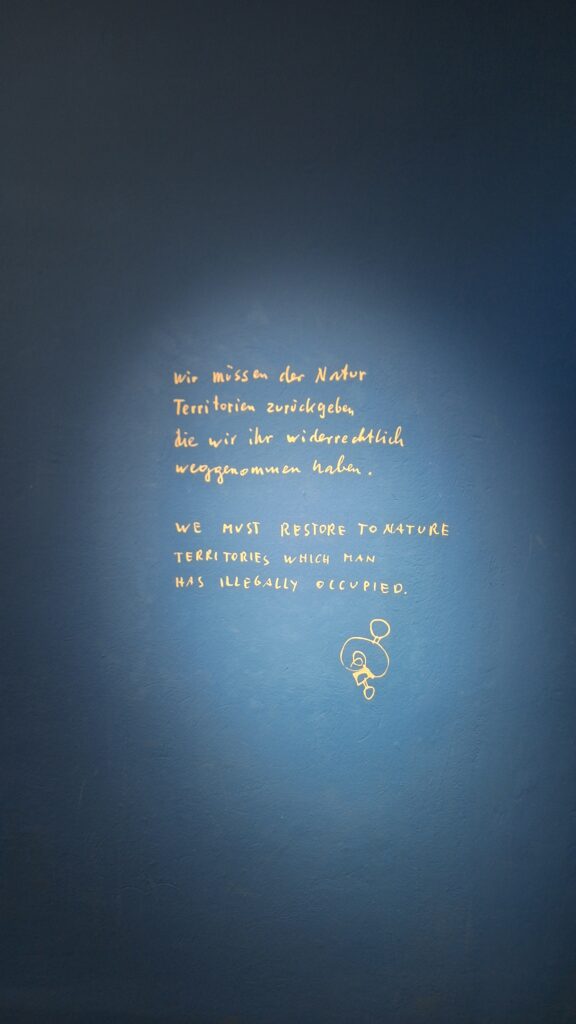 Wir müssen der Natur
Territorien zurückgeben
die wir ihr widerrechtlich
weggenommen haben.
WE MUST RESTORE TO NATURE
TERRITORIES WHICH MAN
HAS ILLEGALLY OCCUPIED.